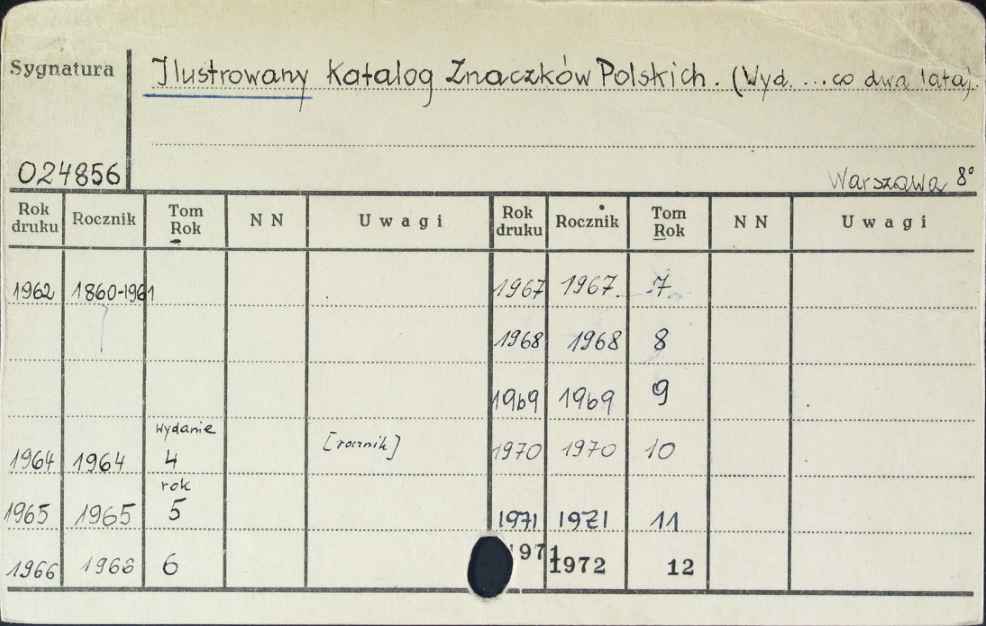 Sygnatura Ilustrowany Katalog Znaczków Polskich. (Wyd. ... co dwa lata).
024856 Warszawa 8°
Rok druku Rocznik Tom Rok N N Uwagi Rok druku Rocznik Tom Rok N N Uwagi
1962 1860-1961 1967 1967. 7
1968 1968 8
1969 1969 9
wydanie
1964 1964 4 [rocznik] 1970 1970 10
rok
1965 1965 5 1971 1971 11
1966 1966 6 1971 1972 12